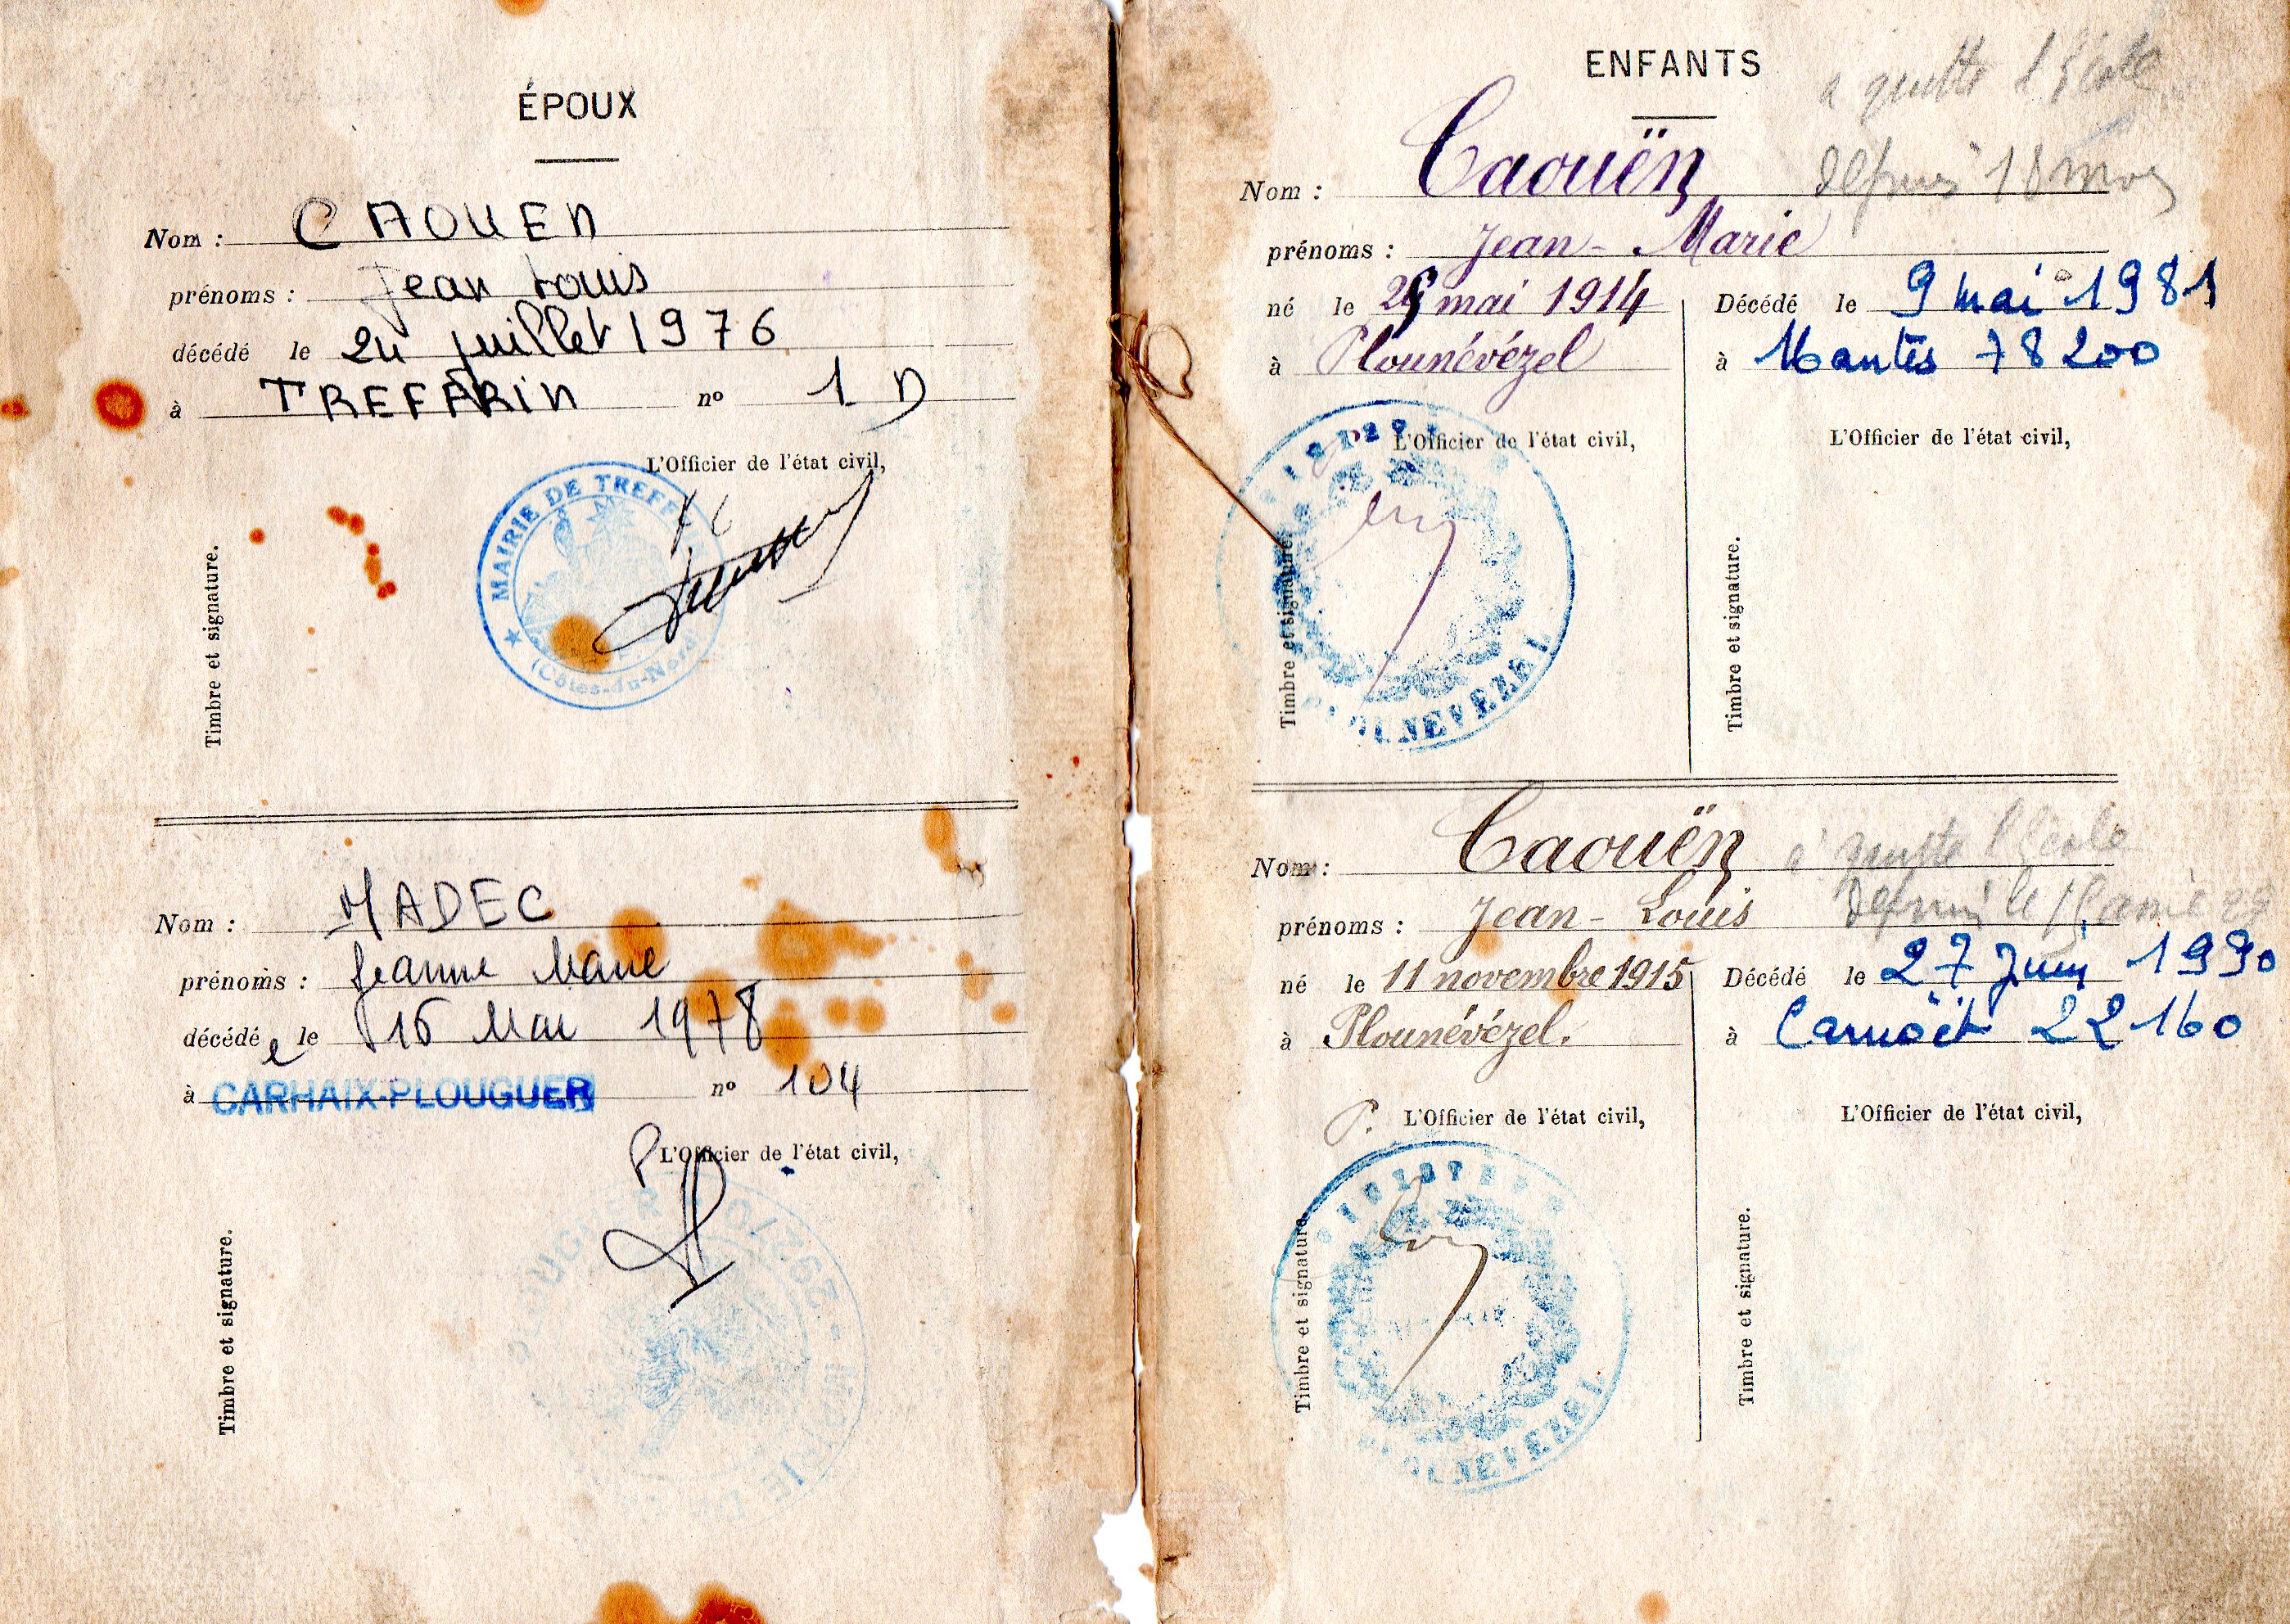 ÉPOUX
Nom : CAOUEN
prénoms : Jean Louis
décédé le 24 juillet 1976
à TREFFRIN nº 1 D
L'Officier de l'état civil,
MAIRIE DE TREFF
(Côtes-du-Nord)
Timbre et signature.
Nom : MADEC
prénoms : Jeanne Marie
décédée le 16 Mai 1978
à CARHAIX-PLOUGUER nº 104
P L'Officier de l'état civil,
Timbre et signature.
ENFANTS
a quitté l'École
depuis 18 mois
Nom : Caouën
prénoms : Jean-Marie
né le mai 1914
à Plounévézel
Décédé le 9 mai 1981
à Mantes 78200
L'Officier de l'état civil,
L'Officier de l'état civil,
Timbre et signature.
Timbre et signature.
Nom : Caouën
a quitté l'École
prénoms : Jean-Louis
depuis le
né le 11 novembre 1915
à Plounévézel.
Décédé le 27 Juin 1990
à Carnoët 22160
P. L'Officier de l'état civil,
L'Officier de l'état civil,
Timbre et signature.
Timbre et signature.